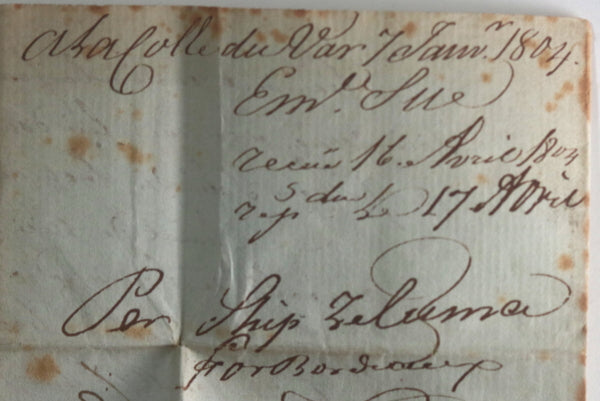 a La Colle du Var 7 Janv.r 1804.
Em.l Sue
recue 16. Avril 1804
rep.s du d.e 17 Avril
Per Ship Zeluma
For Bordeaux